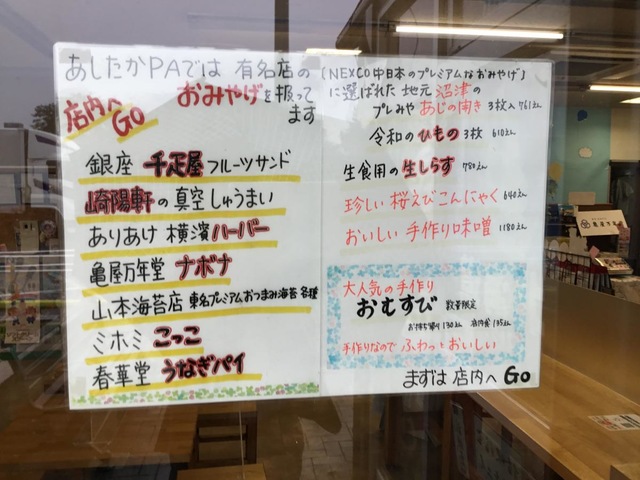 あしたかPAでは 有名店の
おみやげを扱って
ます
店内へ
GO
銀座 千疋屋 フルーツサンド
崎陽軒の真空しゅうまい
ありあけ 横濱 ハーバー
亀屋万年堂 ナボナ
山本海苔店 東名プレミアムおつまみ海苔 各種
ミホミ こっこ
春華堂 うなぎパイ
[NEXCO中日本のプレミアムなおみやげ]
に選ばれた 地元 沼津の
プレみや あじの開き 3枚入 761えん
令和のひもの 3枚 610えん
生食用の生しらす 780えん
珍しい 桜えびこんにゃく 640えん
おいしい 手作り味噌 1180えん
大人気の手作り
おむすび 数量限定
お持ち帰り 130えん 店内食 135えん
手作りなので ふわっとおいしい
まずは 店内へ GO